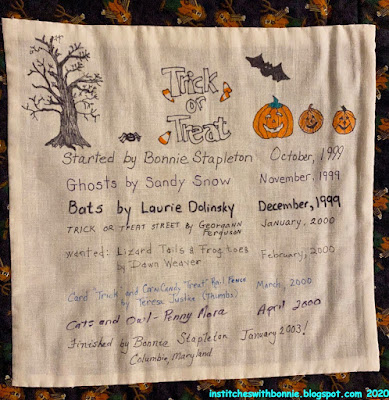 Trick
or
Treat
Started by Bonnie Stapleton October, 1999
Ghosts by Sandy Snow November, 1999
Bats by Laurie Dolinsky December, 1999
TRICK OR TREAT STREET By Georgann Ferguson January, 2000
Wanted: Lizard Tails & Frog toes
by Dawn Weaver February, 2000
Card "Trick" and Corn Candy "Treat" Rail Fence March, 2000
by Teresa (Thumbs)
Cats and Owl - Penny Mora April 2000
Finished by Bonnie Stapleton January 2003!
Columbia, Maryland
institcheswithbonnie.blogspot.com 2020